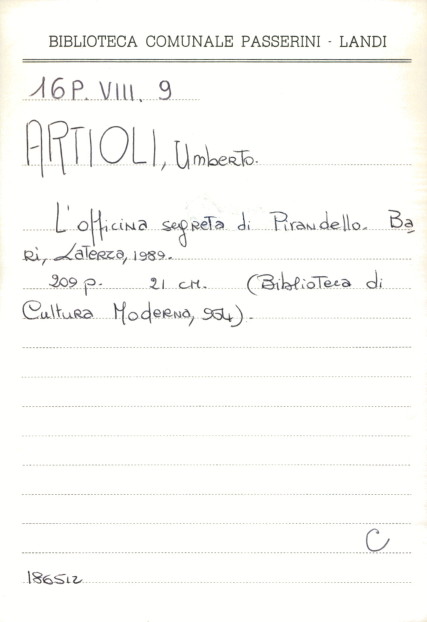 BIBLIOTECA COMUNALE PASSERINI - LANDI
16 P. VIII. 9
ARTIOLI, Umberto.
L'officina segreta di Pirandello. Ba
ri, Laterza, 1989.
209 p. 21 cm. (Biblioteca di
Cultura Moderna, 964).
C
186512